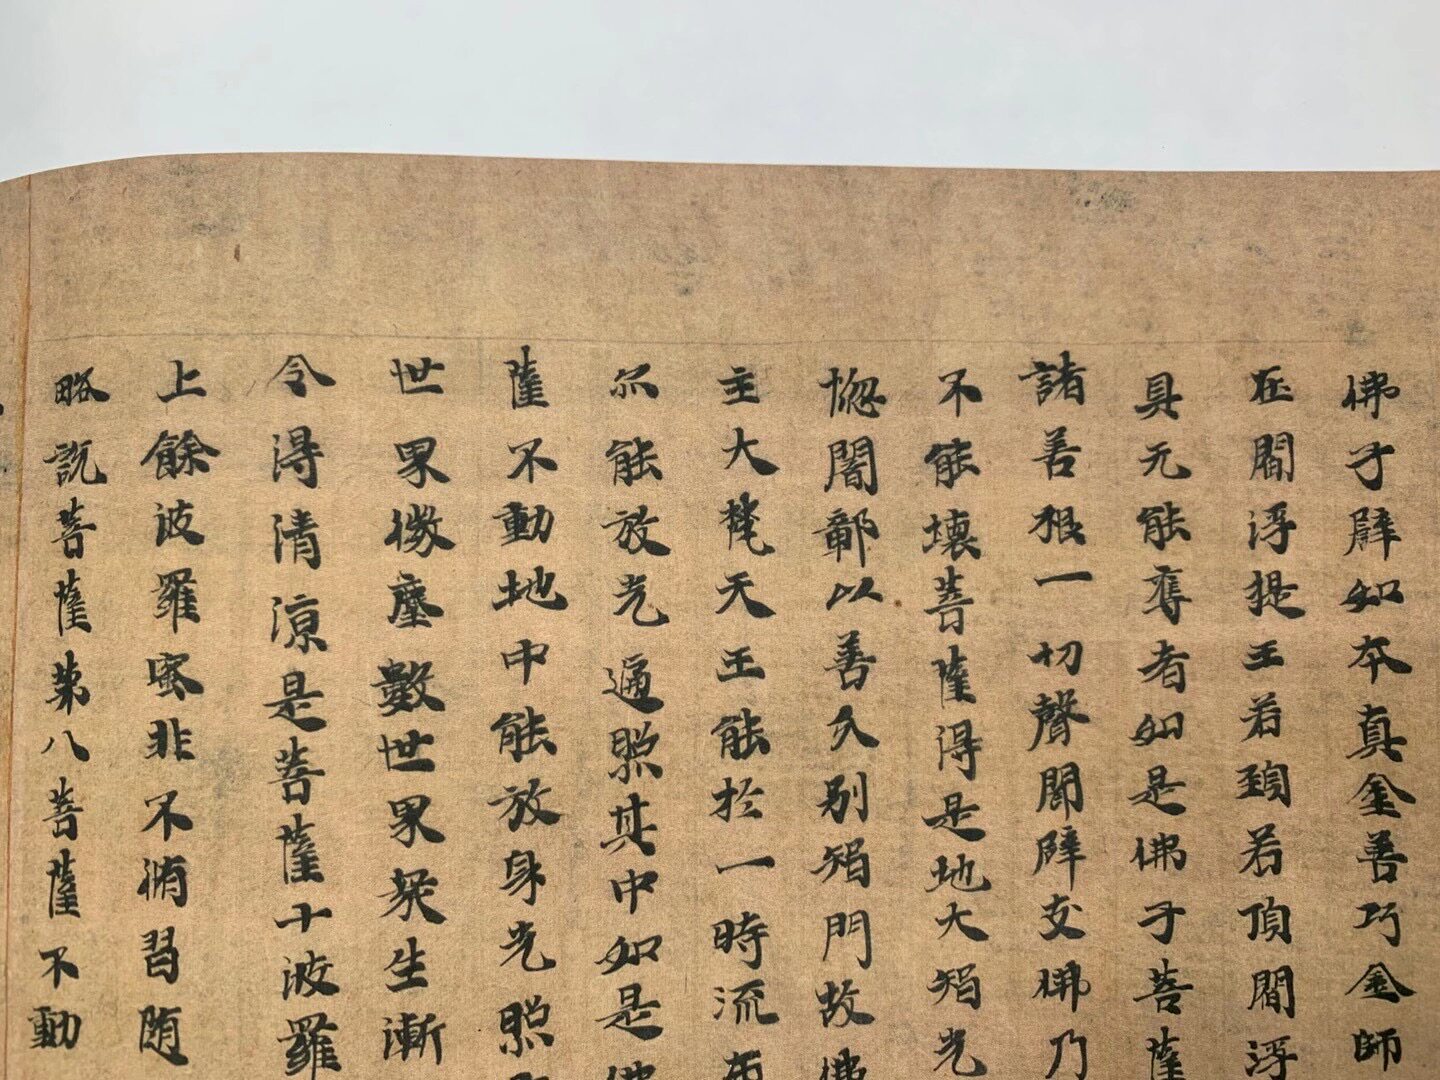 佛子譬如本真金善巧金師
在閻浮提王若頸若頂閻浮
具无能奪者如是佛子菩薩
諸善根一切聲聞辟支佛乃
不能壞菩薩得是地大智光
惚闇鄣以善久別智門故佛
主大梵天王能於一時流布
尒能放光遍照其中如是佛
薩不動地中能放身光照
世界微塵數世界衆生漸
令得清涼是菩薩十波羅
上餘波羅蜜非不脩習随
略說菩薩第八菩薩不動